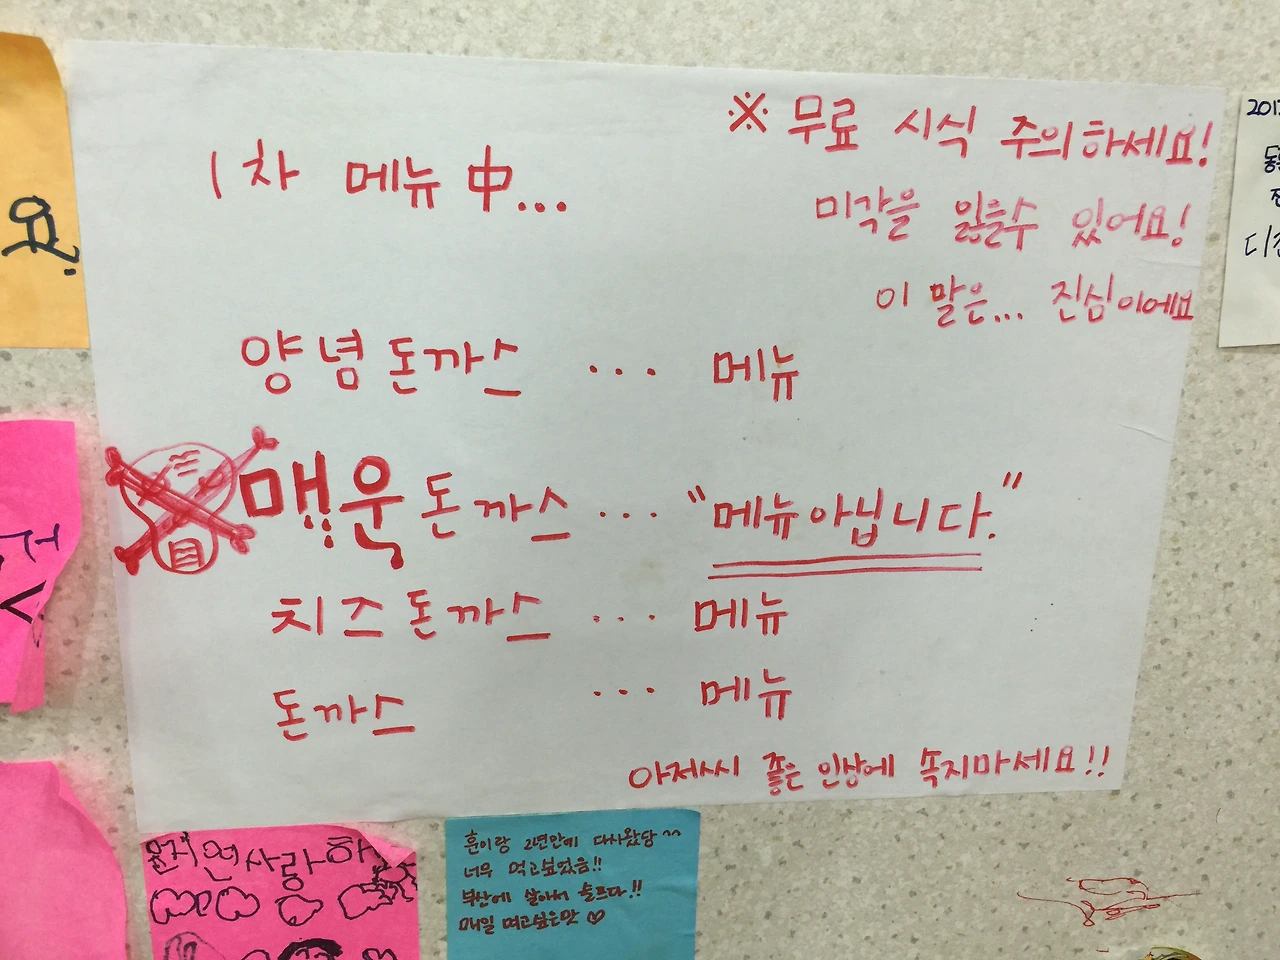 ※ 무료 시식 주의하세요!
1차 메뉴 中...
미각을 잃을수 있어요!
이 말은... 진심이에요
양념돈까스 ... 메뉴
매운돈까스 ... "메뉴아닙니다."
치즈돈까스 ... 메뉴
돈까스 ... 메뉴
아저씨 좋은 인상에 속지마세요!!
요.
201
디
사랑하
훈이랑 2년만에 다시왔당^^
너무 먹고싶었음!!
부산에 살아서 슬프다!!
매일 먹고싶은맛 ♡